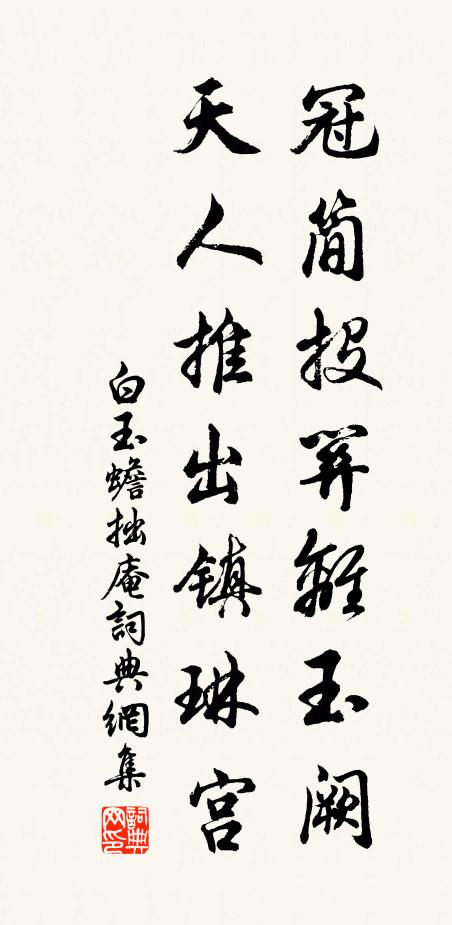 冠簡投笄離玉闕
天人推出鎮琳宮
白玉蟾拙庵詞典網集
詞典网印